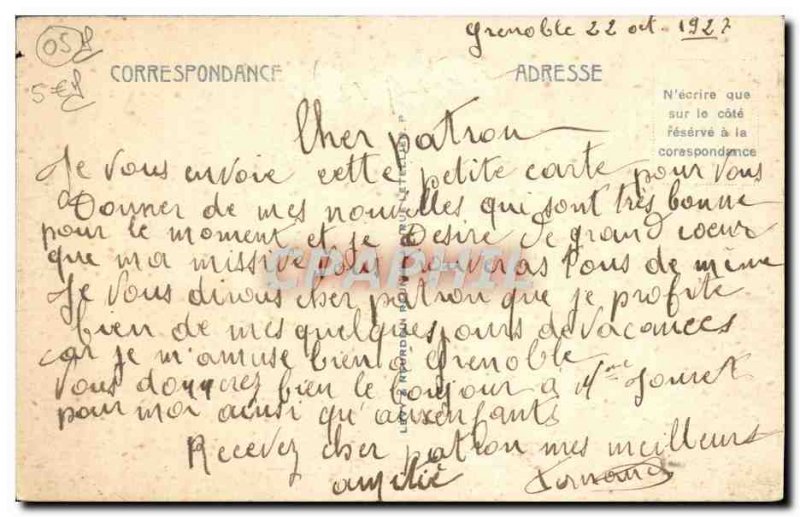 Grenoble 22 oct. 1927
05
5€
CORRESPONDANCE
ADRESSE
N'écrire que
sur le côté
réservé à la
corespondance
Cher patron
Je vous envoie cette petite carte pour vous
Donner de mes nouvelles qui sont très bonne
pour le moment et je Desire de grand coeur
que ma missive vous trouveras tous de même
Je vous dirous cher patron que je profite
bien de mes quelques jours de vacances
car je m'amuse bien a Grenoble
Vous donnerez bien le bonjour à Mme
pour moi ainsi qu'auxenfants
Recevez cher patron mes meilleurs
amitié Fernand
CPAPHIL